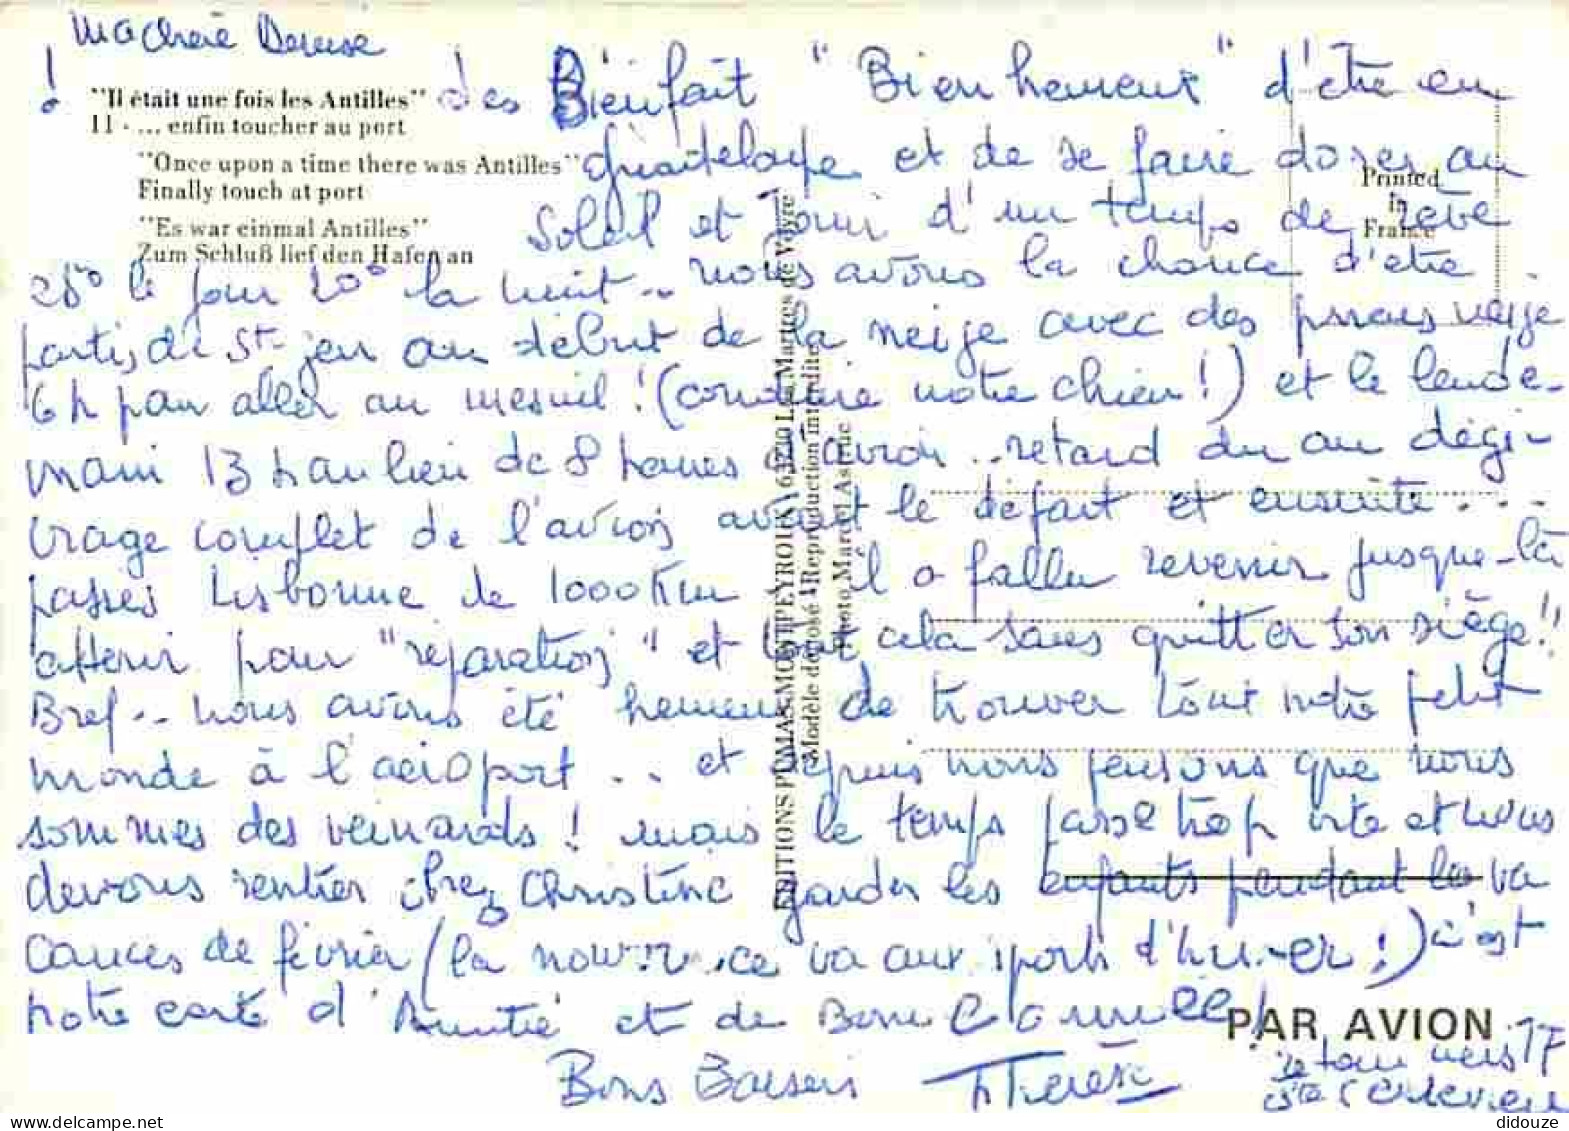 Ma Chère Denise
!
"Il était une fois les Antilles"
11 - ... enfin toucher au port
"Once upon a time there was Antilles"
Finally touch at port
"Es war einmal Antilles"
Zum Schluß lief den Hafen an
Printed
in
France
EDITIONS PUMAS MONTPEYROUX 63720 Les Martres de Veyre
Modèle déposé Reproduction interdite
Photo Marcel Astruc
des Bienfait "Bienheureux" d'être en
Guadeloupe et de se faire dorer au
Soleil et Jouir d'un temps de rêve
28° le jour 20° la nuit .. nous avons la chance d'être
partis de St Jen au début de la neige avec des pneus neige
6 h pour aller au mesnil ! (conduire notre chien !) et le lende-
main 13 h au lieu de 8 heures avion .. retard du au dégi-
vrage complet de l'avion avant le départ et ensuite ...
passés Lisbonne de 1000 Km il a fallu revenir jusque-là
atterrir pour "réparation" et tout cela sans quitter son siège !!
Bref .. nous avons été heureux de trouver tout notre petit
monde à l'aéroport ... et depuis nous pensons que nous
sommes des veinards ! mais le temps passe trop vite et nous
devons rentrer chez Christine garder les enfants pendant les va
cances de février (la nourrice va aux sports d'hiver !) c'est
notre carte d'Amitié et de Bonne Année !
PAR AVION
Bons Baisers Thérèse
retour vers 17 F
Ste Geneviève
didouze
delcampe.net